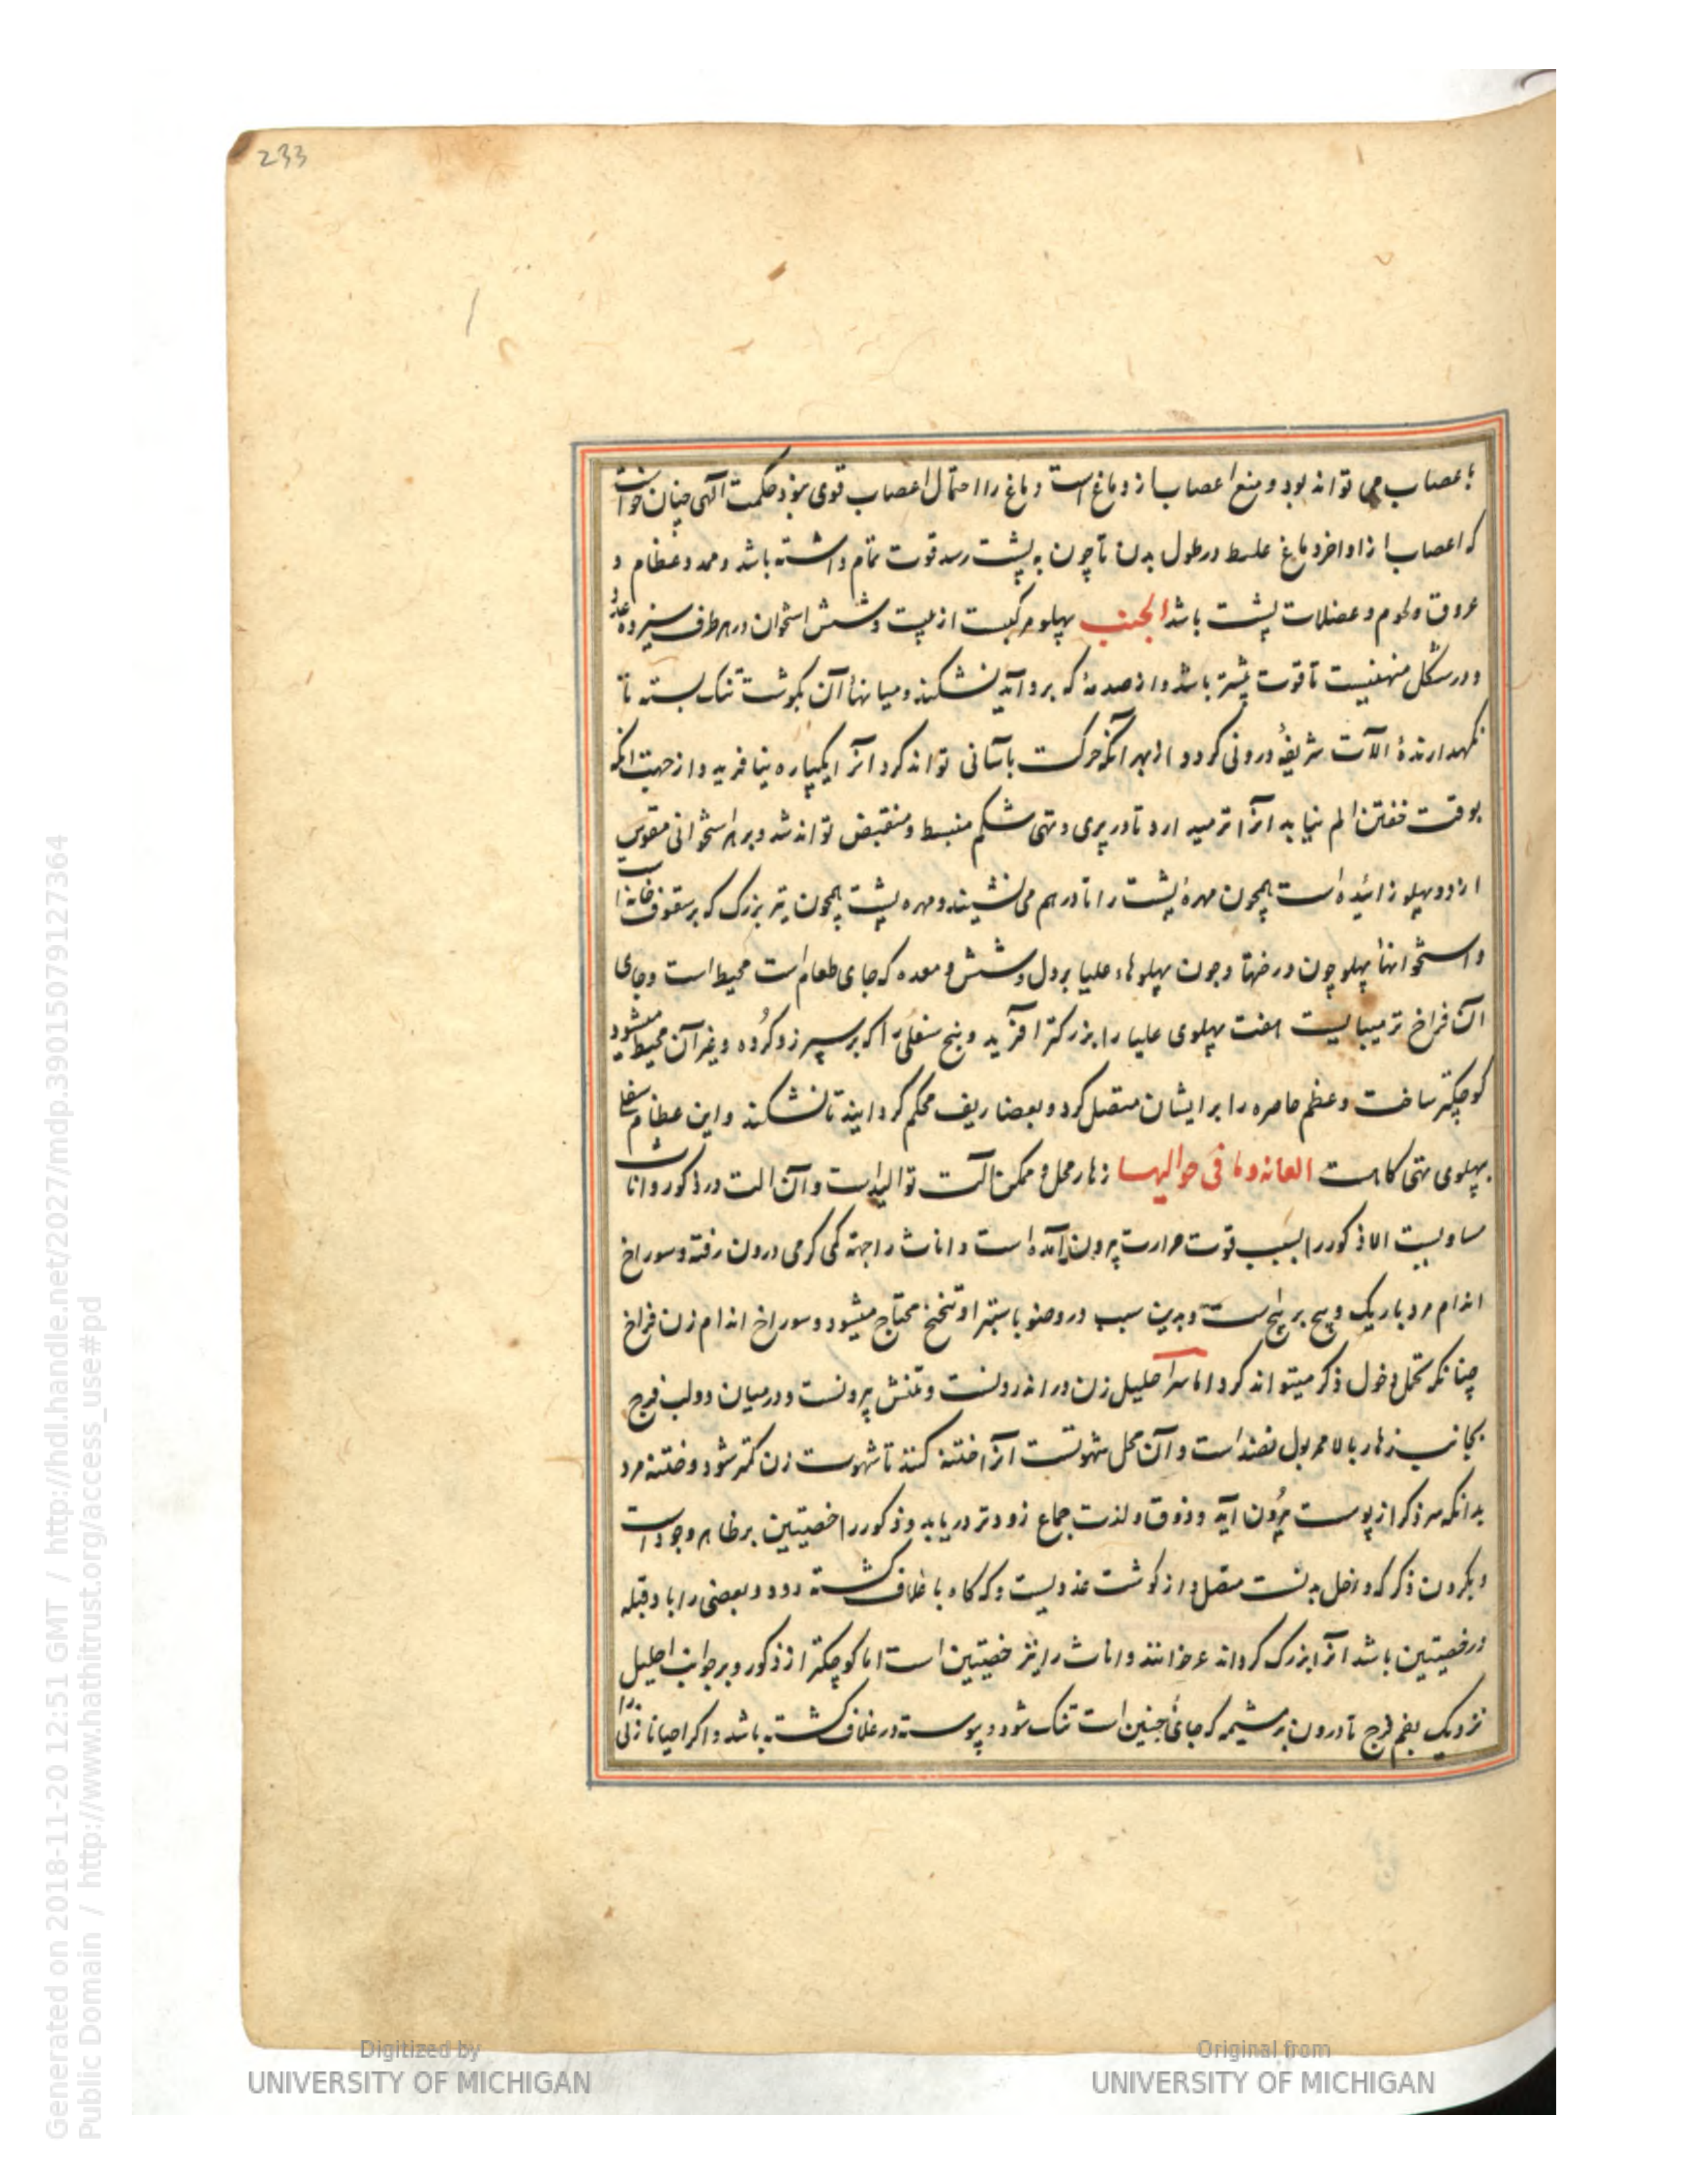 233
باعصاب می تواند بود و منبع اعصاب از دماغ است و دماغ را احتمال اعصاب قوی نبود حکمت الهی چنان خواست
که اعصاب از اواخر دماغ غلیظ در طول بدن تا چون به پشت رسد قوت تمام داشته باشد و ممد و عظام و
عروق و لحوم و عضلات پشت باشد الجنب پهلو مرکبست از بیست و شش استخوان در هر طرف سیزده عدد
و در شکل منحنیست تا قوت بیشتر باشد و از صدمهٔ که برو آید نشکند و میانهاء آن بگوشت تنک بسته تا
نگهدارندهٔ آلات شریفهٔ درونی گردد و از بهر آنکه حرکت باسانی تواند کرد آنرا یکپاره نیافرید و از جهت انکه
بوقت خفتن الم نیابد آنرا ترمید ارد تا در پری و تهی شکم منبسط و منقبض تواند شد و بر هر استخوانی مقوس
از دو پهلو زائیده است همچون مهرهٔ پشت را تا درهم می نشیند و مهره پشت همچون تیر بزرگ که بر سقوف خانه است
و استخوانهاء پهلو چون درختها و چون پهلوهاء علیا بر دل و شش و معده که جای طعام است محیط است و جای
آن فراخ تر میبایست هفت پهلوی علیا را بزرگتر آفرید و پنج سفلی را که بر سپرز و گرده و غیر آن محیط میشود
کوچکتر ساخت و عظم خاصره را بر ایشان متصل کرد و بعضاریف محکم گردانید تا نشکند و این عظام سفلی
پهلوی تهی گاهست العانه وما فی حوالیها زهار محل و ممکن آلت توالید است و آن الت در ذکور و اناث
مساویست الا ذکور را بسبب قوت حرارت بیرون آمده است و اناث را جهة کمی گرمی درون رفته و سوراخ
اندام مرد باریک و پیچ بر پیچ است و بدین سبب در وضو باستبرا و تنحنح محتاج میشود و سوراخ اندام زن فراخ
چنانکه تحمل دخول ذکر میتواند کرد اما سر احلیل زن در اندرونست و تنش بیرونست و در میان دو لب فرج
بجانب زهار بالا ممر بول است و آن محل شهوتست آنرا ختنه کنند تا شهوت زن کمتر شود و ختنه مرد
بدانکه سر ذکر از پوست بیرون آید و ذوق و لذت جماع زودتر دریابد و ذکور را خصیتین بر ظاهر وجود است
و بگردن ذکر که داخل بدنست متصل و از گوشت غددیست و که گاه با غلاف گشته رود و بعضی را باد و قیله
در خصیتین باشد آنرا بزرگ گرداند غر خوانند و اناث را نیز خصیتین است اما کوچکتر از ذکور و بر جوانب احلیل
نزدیک بفم فرج تا درون بر مشیمه که جای جنین است تنک شود و پیوسته در غلاف گشته باشد و اگر احیانا زنی را